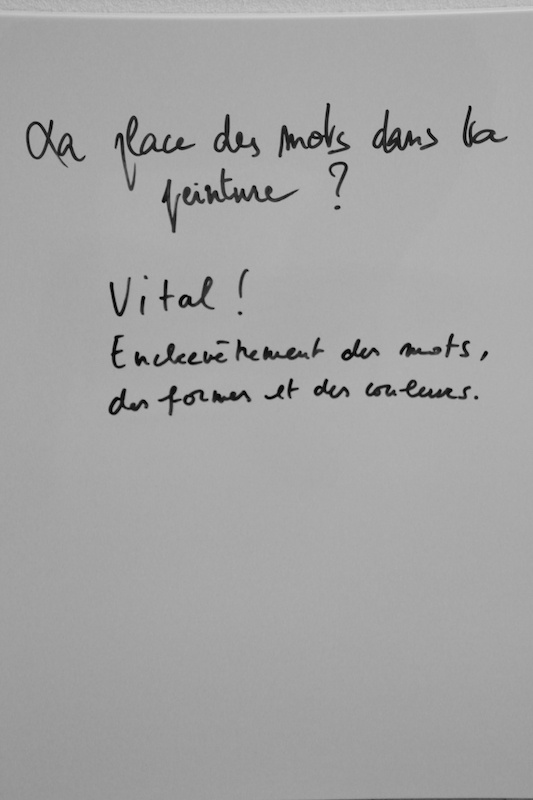 La place des mots dans la
peinture ?
Vital !
Enchevêtrement des mots,
des formes et des couleurs.